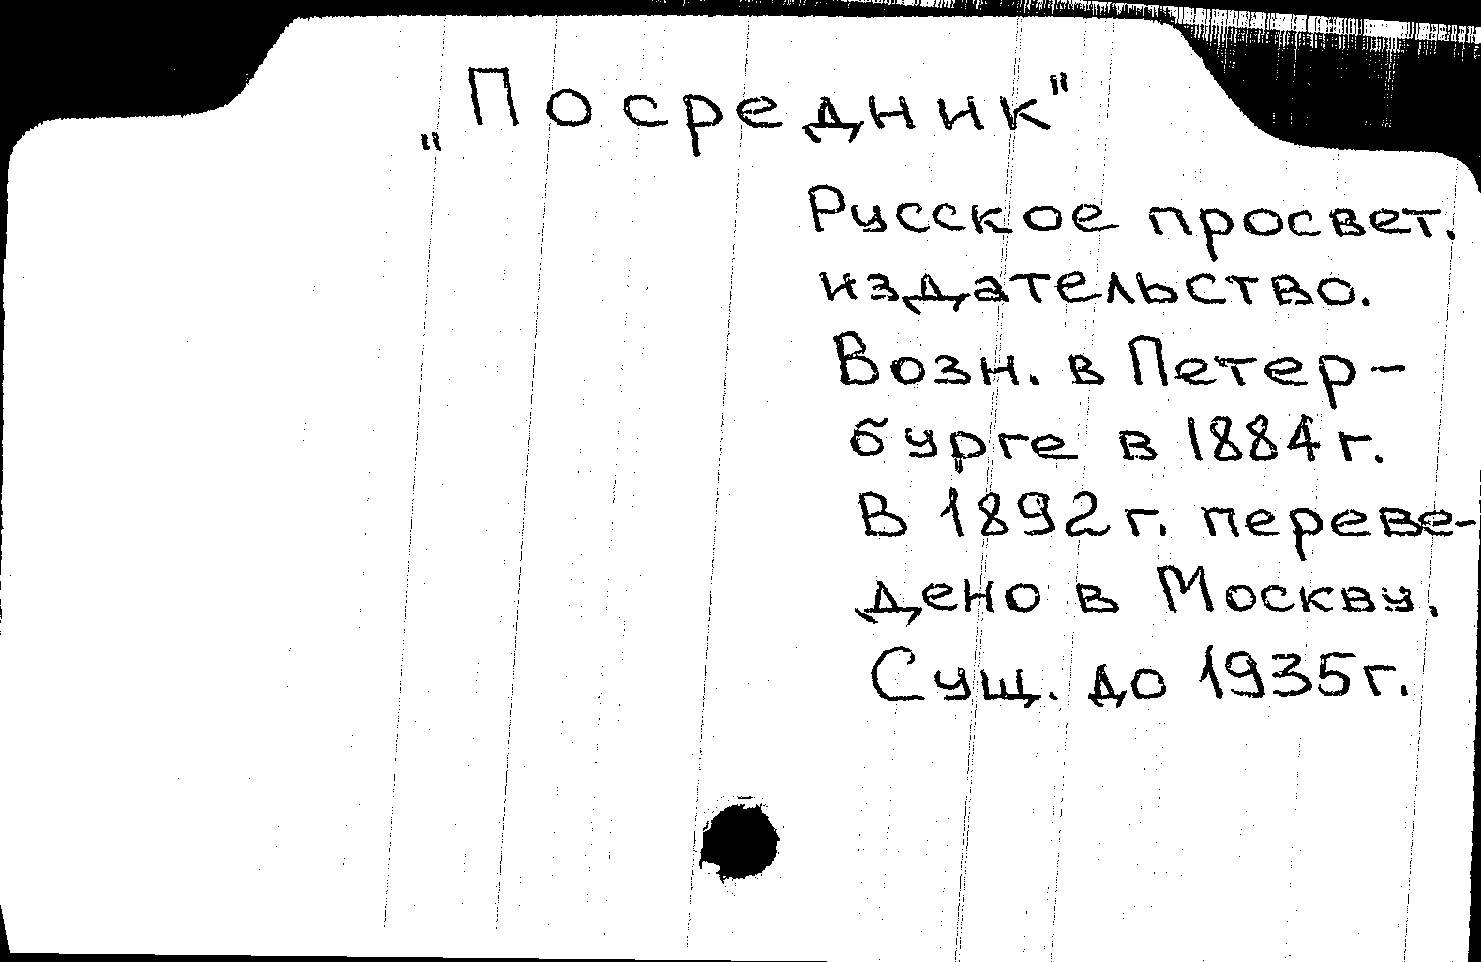 „Посредник"
Русское просвет.
издательство.
Возн. в Петер-
бурге в 1884 г.
В 1892 г. переве-
дено в Москву.
Сущ. до 1935 г.